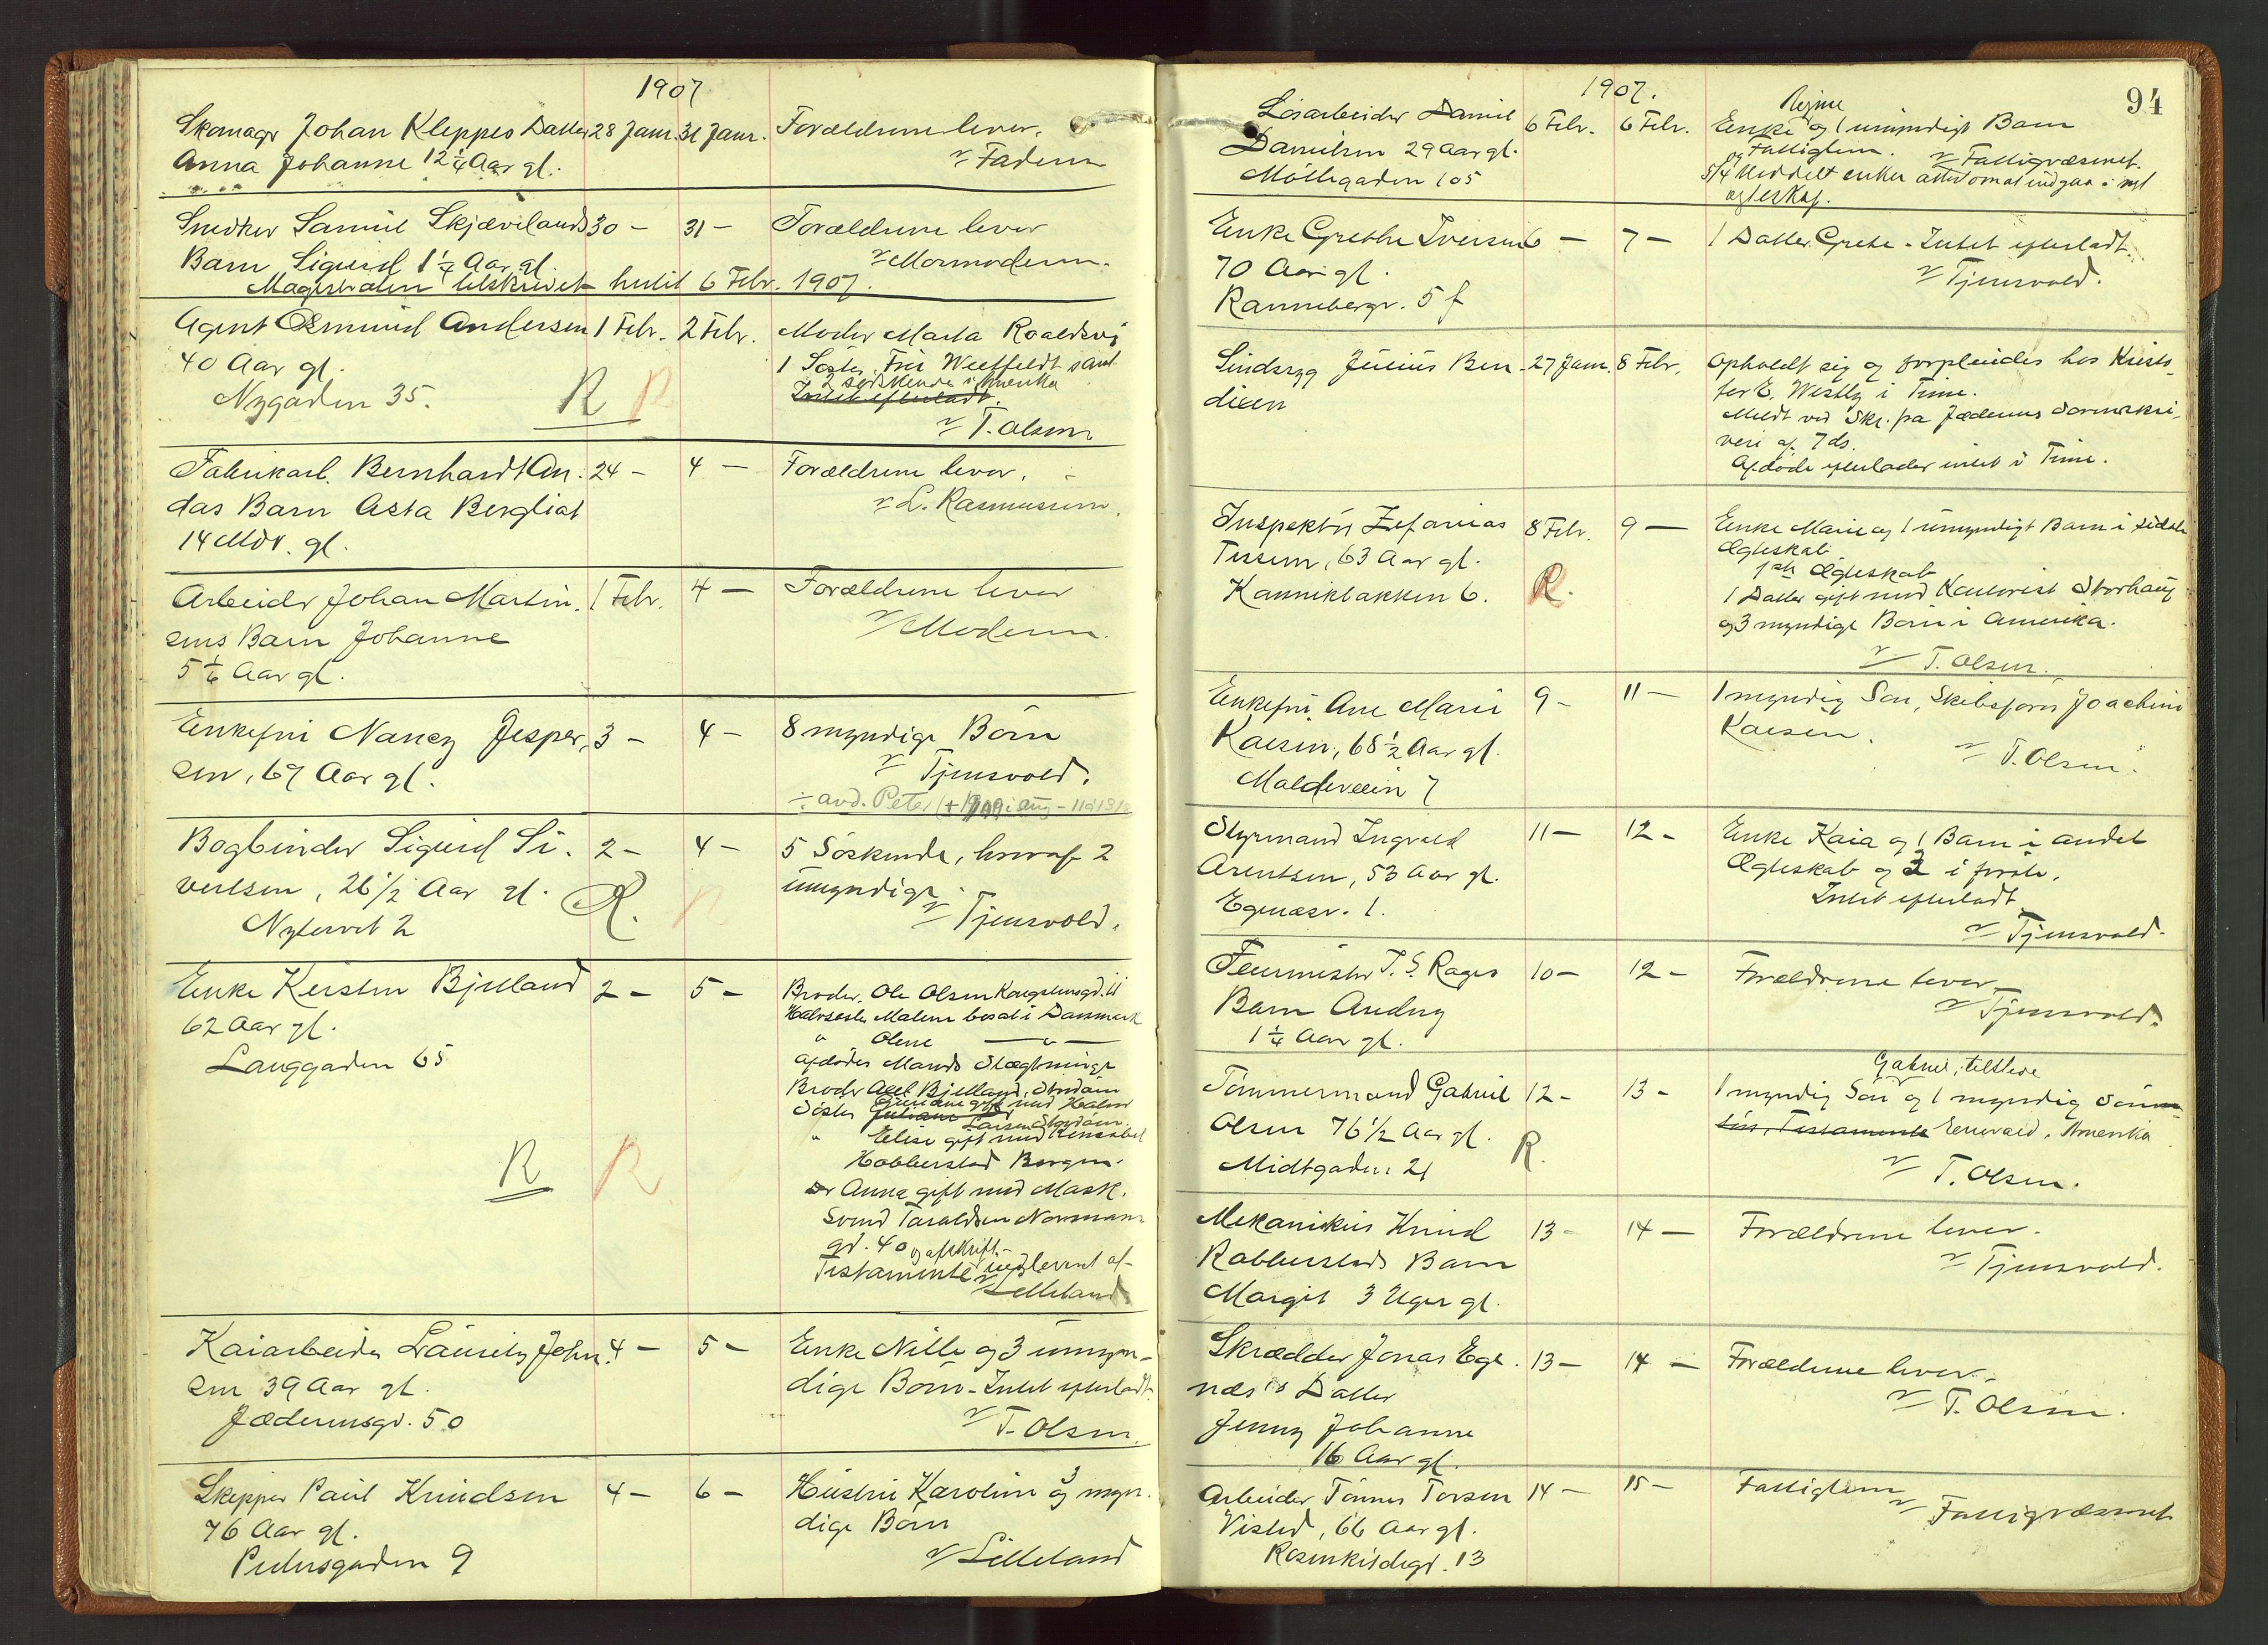 1907
Skomagr Johan Kleppes Datter 28 Janr. 31 Janr. Forældrene lever.
Anna Johanne 12 1/4 Aar gl. v/ Faderen
Snedker Samuel Skjævelands 30 - 31 - Forældrene lever
Barn Sigurd 1 1/4 Aar gl. v/ Mormoderen.
Magistraten tilskrevet hertil 6 Febr. 1907.
Agent Osmund Andersen 1 Febr. 2 Febr. Moder Marta Roaldsøi
40 Aar gl. 1 Søster, Fru Weeffeldt samt
2 søskende i Amerika
Nygaden 35. R R Intet efterladt.
v/ T. Olsen
Fabrikarb. Bernhardt An- 24 - 4 - Forældrene lever.
das Barn Asta Bergliot v/ L. Rasmussen.
14 Mdr. gl.
Arbeider Johan Martin- 1 Febr. 4 - Forældrene lever
sens Barn Johanne v/ Moderen.
5 1/6 Aar gl.
Enkefru Nancy Jesper- 3 - 4 - 8 myndige Børn
sen, 67 Aar gl. v/ Tjensvold.
÷ avd. Peter
Bogbinder Sigurd Si- 2 - 4 - 5 Søskende, hvoraf 2
vertsen, 26 1/2 Aar gl. R. R umyndige
Nytorvet 2 v/ Tjensvold.
Enke Kirsten Bjelland 2 - 5 - Broder, Ole Olsen Kongstensgd. 11
62 Aar gl. Halvsøster Malene bosat i Danmark
Langgaden 65 " Oline — " —
Afdødes Mands Slægtninge
Broder Axel Bjelland, Avdøm
Søster Juliane gift med Halvor
Larsen
" Elise gift med
Hobberstad Bergen.
R R Anna gift med Mask.
Svend Taraldsen Normann
gd. 40 og afskrift
Testamente indleveret af
v/ Lilleland
Kaiarbeider Lauritz John- 4 - 5 - Enke Nille og 3 umyn-
sen 39 Aar gl. dige Børn - Intet efterladt.
Jæderensgd. 50 v/ T. Olsen
Skipper Paul Knudsen 4 - 6 - Hustru Karoline og 3 myn-
76 Aar gl. dige Børn
Pedersgaden 9 v/ Lilleland
1907. 94
Løsarbeider Daniel 6 Febr. 6 Febr. Enke Regine og 1 umyndigt Barn
Danielsen 29 Aar gl. og Fattiglem. v/ Fattigvæsenet.
Møllegaden 105 5/4 Meddelt enken attest om at indgaa i nyt
egteskap.
Enke Grethe Iversen 6 - 7 - 1 Datter, Grete. Intet efterladt.
70 Aar gl. v/ Tjensvold.
Rannebergr. 5 f
Sindssyg Julius Ben- 27 Janr. 8 Febr. Opholdt sig og forpleiedes hos Kristo-
dixen fer E. Westly i Time.
Meldt ved Skr. fra Jæderens Sorenskri-
veri af 7 ds.
Afdøde efterlader intet i Time.
Inspektør Zefanias 8 Febr. 9 — Enke Marie og 1 umyndigt Barn i sidste
Tersen, 63 Aar gl. Ægteskab
1ste Ægteskab
Kannikbakken 6. R. 1 Datter gift med Storhaug
og 3 myndige Børn i Amerika.
v/ T. Olsen.
Enkefru Ane Marie 9 - 11 — 1 myndig Søn, Skibsfører Joachim
Kaesen, 68 1/2 Aar gl. Kaesen.
Maldeveien 7 v/ T. Olsen.
Styrmand Ingvald 11 — 12 - Enke Kaia og 1 Barn i andet
Arentsen, 53 Aar gl. Ægteskab og 2 i første.
Egenæsv. 1. Intet efterladt.
v/ Tjensvold.
Feiermester T. S. Rages 10 - 12 - Forældrene lever
Barn Andny v/ Tjensvold.
1 1/4 Aar gl.
Tømmermand Gabriel 12 - 13 - 1 myndig Søn Gabriel, tilstede og 1 myndig Søn
Olsen 76 1/2 Aar gl. R. Testamente Amerika
Midtgaden 21 v/ T. Olsen.
Mekanikus Knud 13 - 14 — Forældrene lever.
Robberstads Barn v/ Tjensvold.
Margit 3 Uger gl.
Skrædder Jonas Ege- 13 - 14 — Forældrene lever.
næs's Datter v/ T. Olsen.
Jenny Johanne
16 Aar gl.
Arbeider Tønnes Torsen 14 — 15 - Fattiglem
Visted, 66 Aar gl. v/ Fattigvæsenet
Rosenkildegd. 13